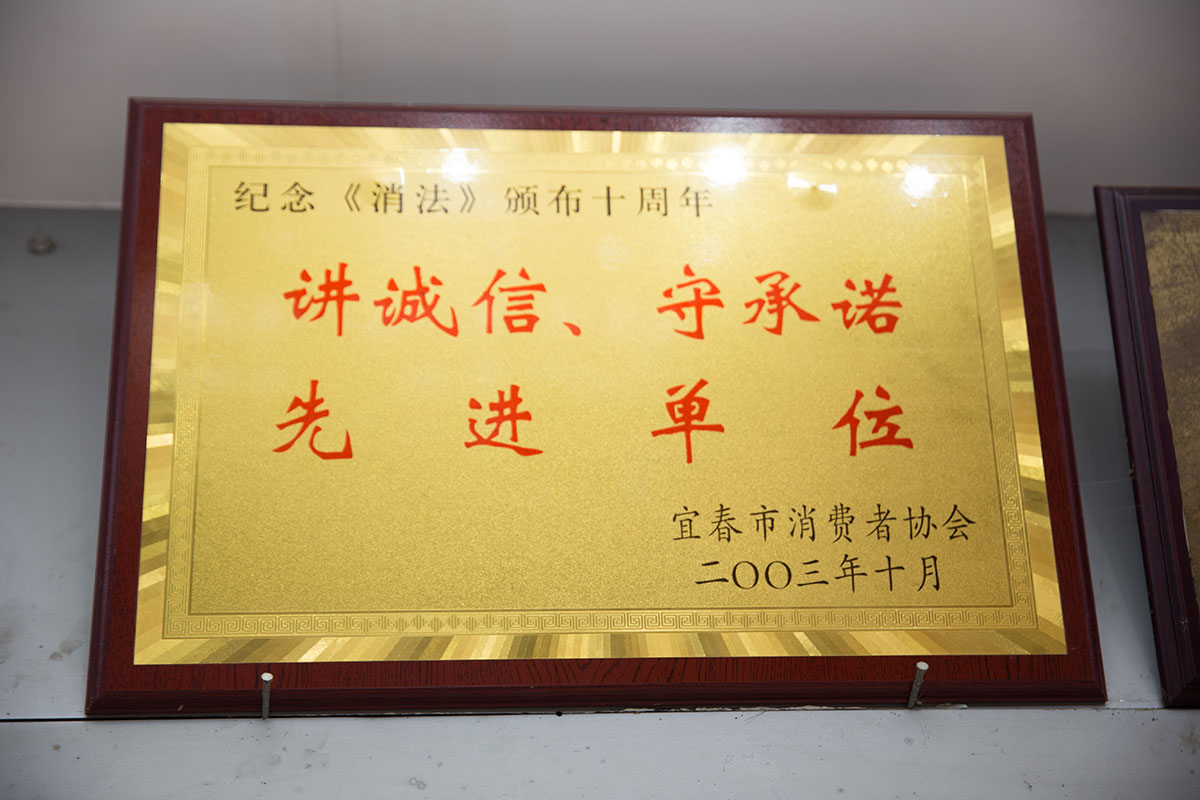 纪念《消法》颁布十周年
讲诚信、守承诺
先进单位
宜春市消费者协会
二〇〇三年十月